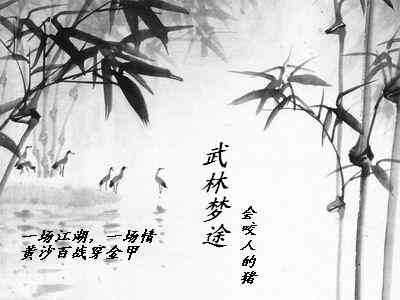 武林梦途
会咬人的猪
一场江湖，一场情
黄沙百战穿金甲